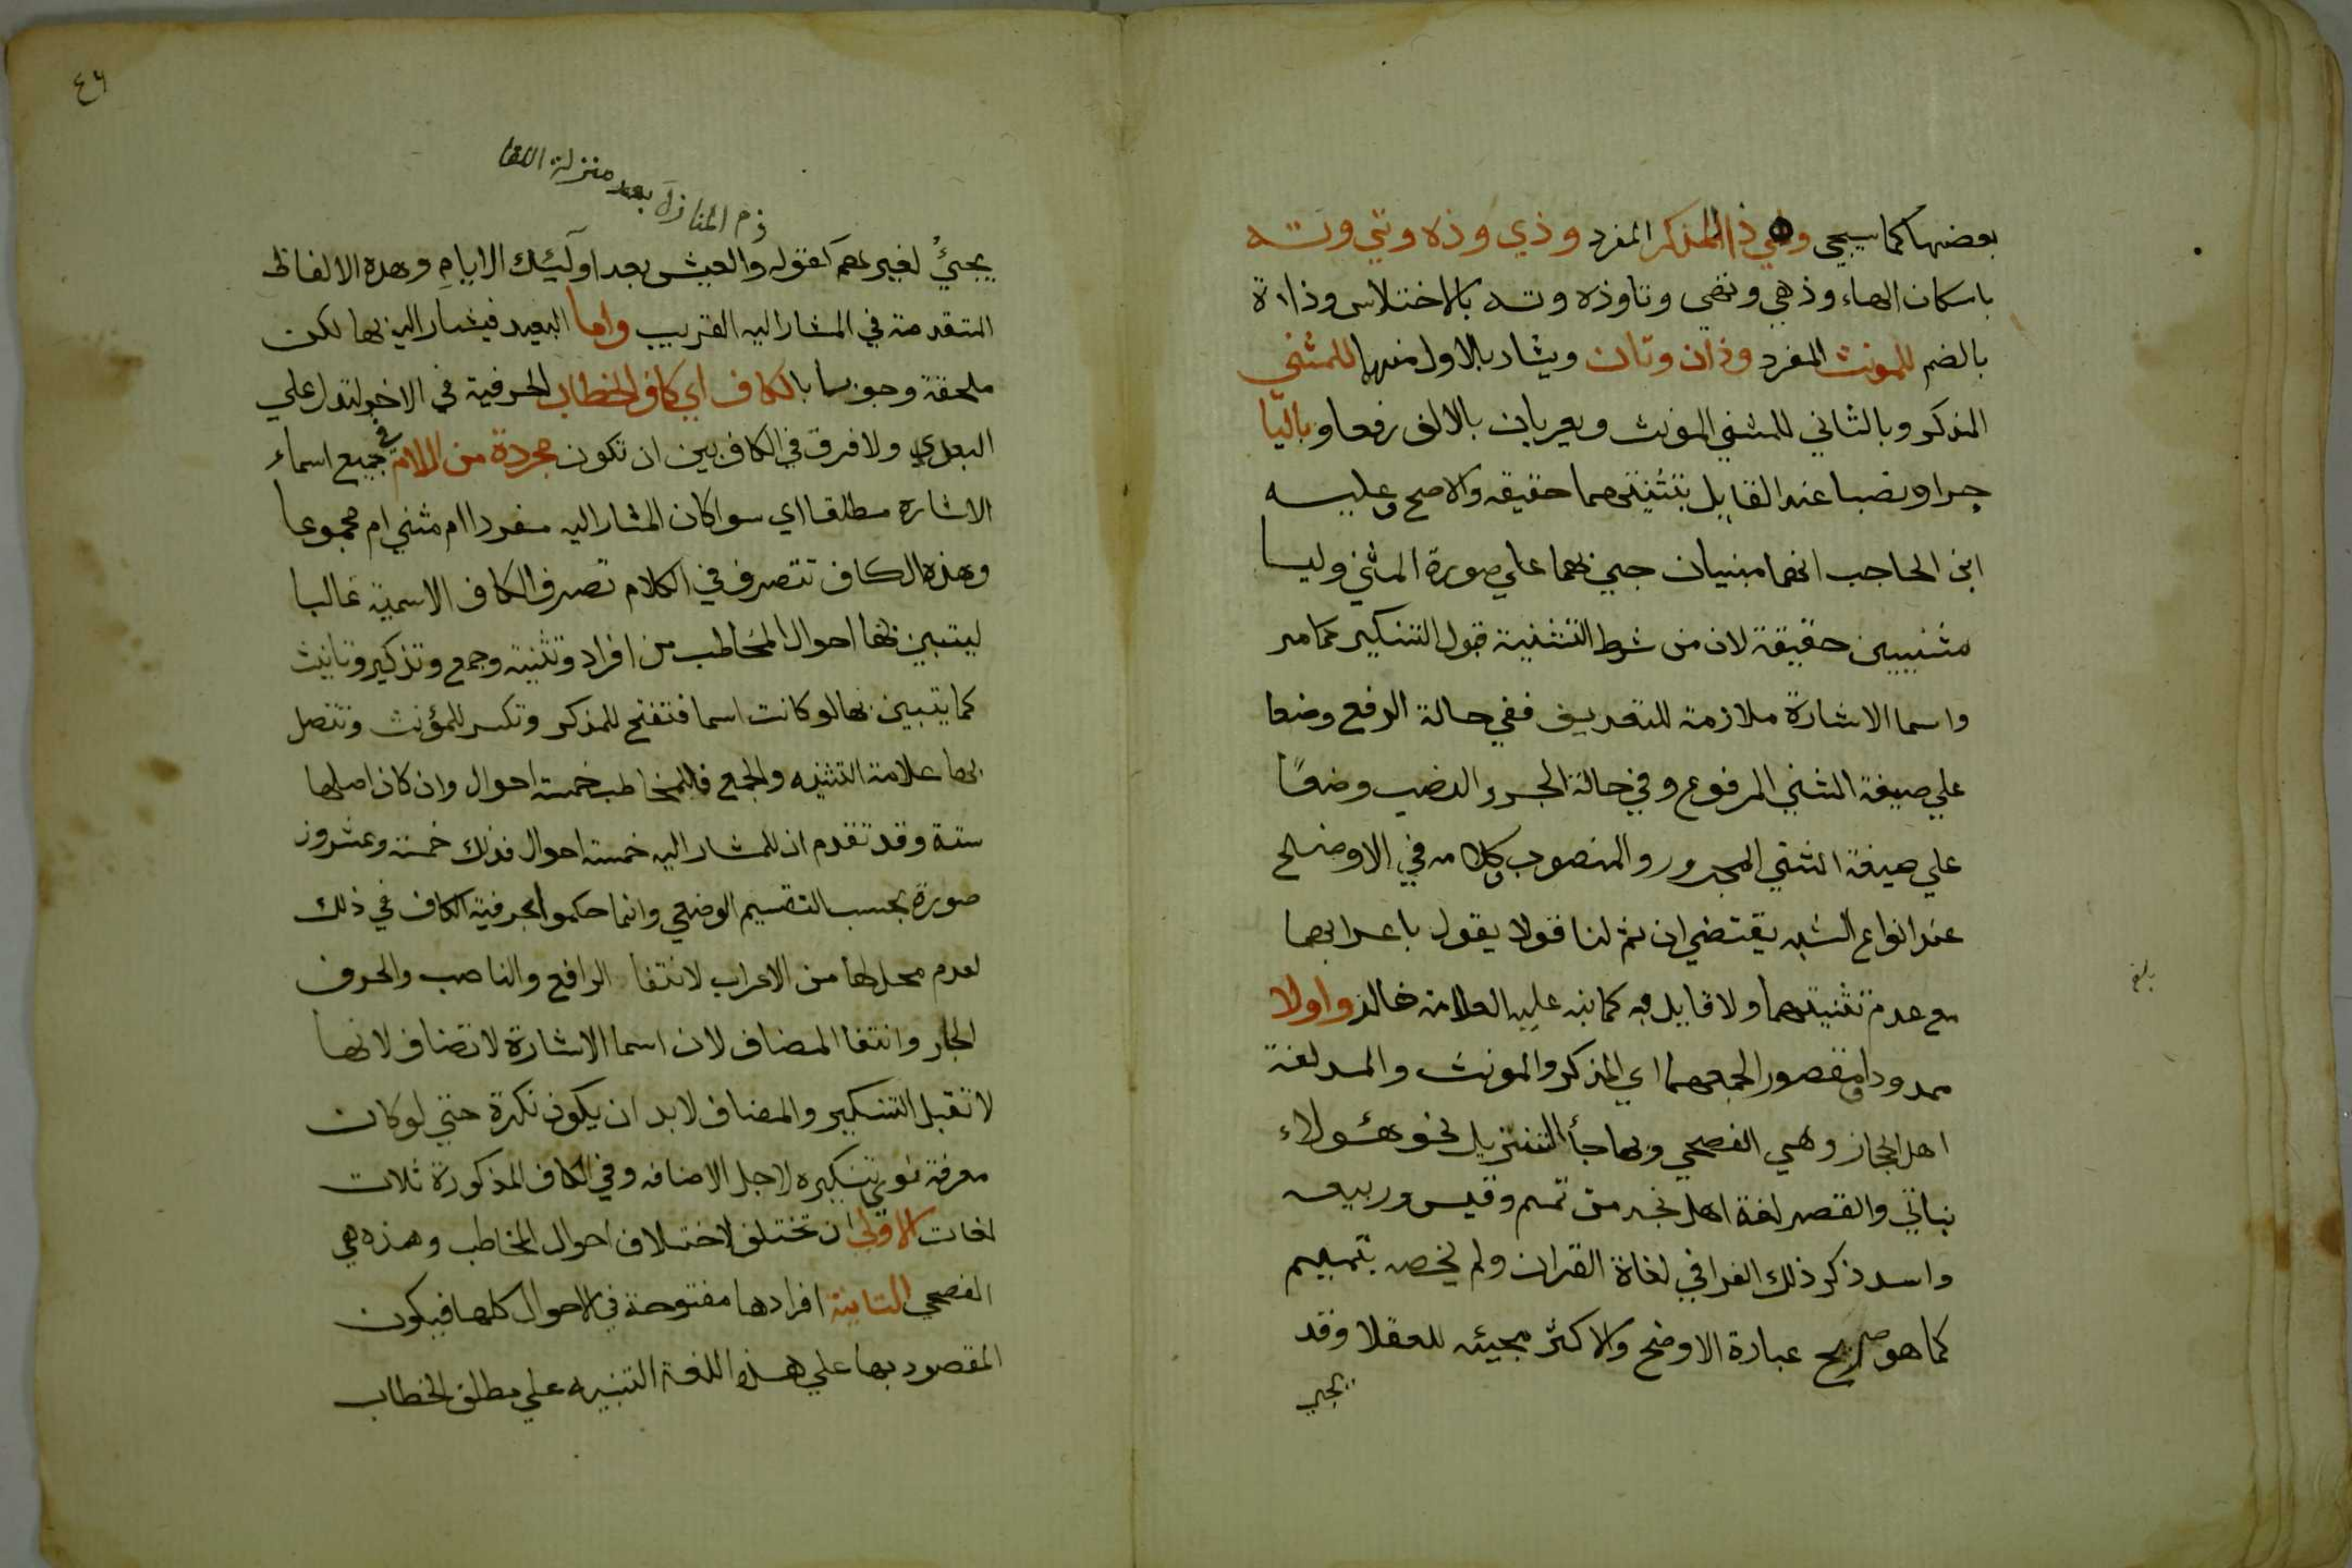 بعضها كما سيجي وهي ذا المذكر المفرد وذي وذه وتي وته
باسكان الهاء وذهي وتهي وتا وذه وته بالاختلاس وذاة
بالضم للمونث المفرد وذان وتان ويشار بالاول منهما للمثني
المذكر وبالثاني للمثني المونث ويعربان بالالف رفعا وباليا
جرا ونصبا عند القايل بتثنيتهما حقيقه والاصح وعليه
ابن الحاجب انهما مبنيان جيئ بهما علي صورة المثني وليسا
مثنيين حقيقة لان من شرط التثنية قبول التنكير كما مر
واسما الاشارة ملازمة للتعريف ففي حالة الرفع وضعا
علي صيغة المثني المرفوع وفي حالة الجر والنصب وضعًا
علي صيغة المثني المجرور والمنصوب وكلامه في الاوضح
عند انواع الشبه يقتضي ان ثم لنا قولا يقول باعرابهما
مع عدم تثنيتهما ولا قايل به كما نبه عليه العلامة خالد واولا
ممدودا ومقصورا لجمعهما اي المذكر والمونث والمد لغة
اهل الحجاز وهي الفصحي وبها جأ التنزيل نحو هئولاء
بناتي والقصر لغة اهل نجد من تميم وقيس وربيعه
واسد ذكر ذلك الفرا في لغاة القران ولم يخصه بتميم
كما هو صريح عبارة الاوضح والاكثر مجيئه للعقلا وقد
يجي
بلغ
٤٦
ذم المنازل بعد منزلة اللقا
يجيئُ لغيرهم كقوله والعيش بعد اولئك الايام وهده الالفاظ
المتقدمة في المشار اليه القريب واما البعيد فيشار اليه بها لكن
ملحقة وجوبا بالكاف اي كاف الخطاب الحرفية في الاخر لتدل علي
البعدي ولا فرق في الكاف بين ان تكون مجردة من اللام في جميع اسماء
الاشاره مطلقا اي سوا كان المشار اليه مفردا ام مثني ام مجموعا
وهذه الكاف تتصرف في الكلام تصرف الكاف الاسمية غالبا
ليتبين بها احوال المخاطب من افراد وتثنية وجمع وتذكير وتانيث
كما يتبين بها لو كانت اسما فتفتح للمذكر وتكسر للمؤنث وتتصل
بها علامة التثنيه والجمع فللمخاطب خمسة احوال وان كان اصلها
ستة وقد تقدم ان للمشار اليه خمسة احوال فذلك خمسة وعشرون
صورة بحسب التقسيم الوضعي وانما حكموا بحرفية الكاف في ذلك
لعدم محلها من الاعراب لانتفا الرافع والناصب والحرف
الجار وانتفا المضاف لان اسما الاشارة لا تضاف لانها
لا تقبل التنكير والمضاف لابد ان يكون نكرة حتي لو كان
معرفة نوي تنكيره لاجل الاضافه وفي الكاف المذكورة ثلاث
لغات الاولي ان تختلف لاختلاف احوال المخاطب وهذه هي
الفصحي الثانية افرادها مفتوحة في الاحوال كلها فيكون
المقصود بها علي هذه اللغة التنبيه علي مطلق الخطاب